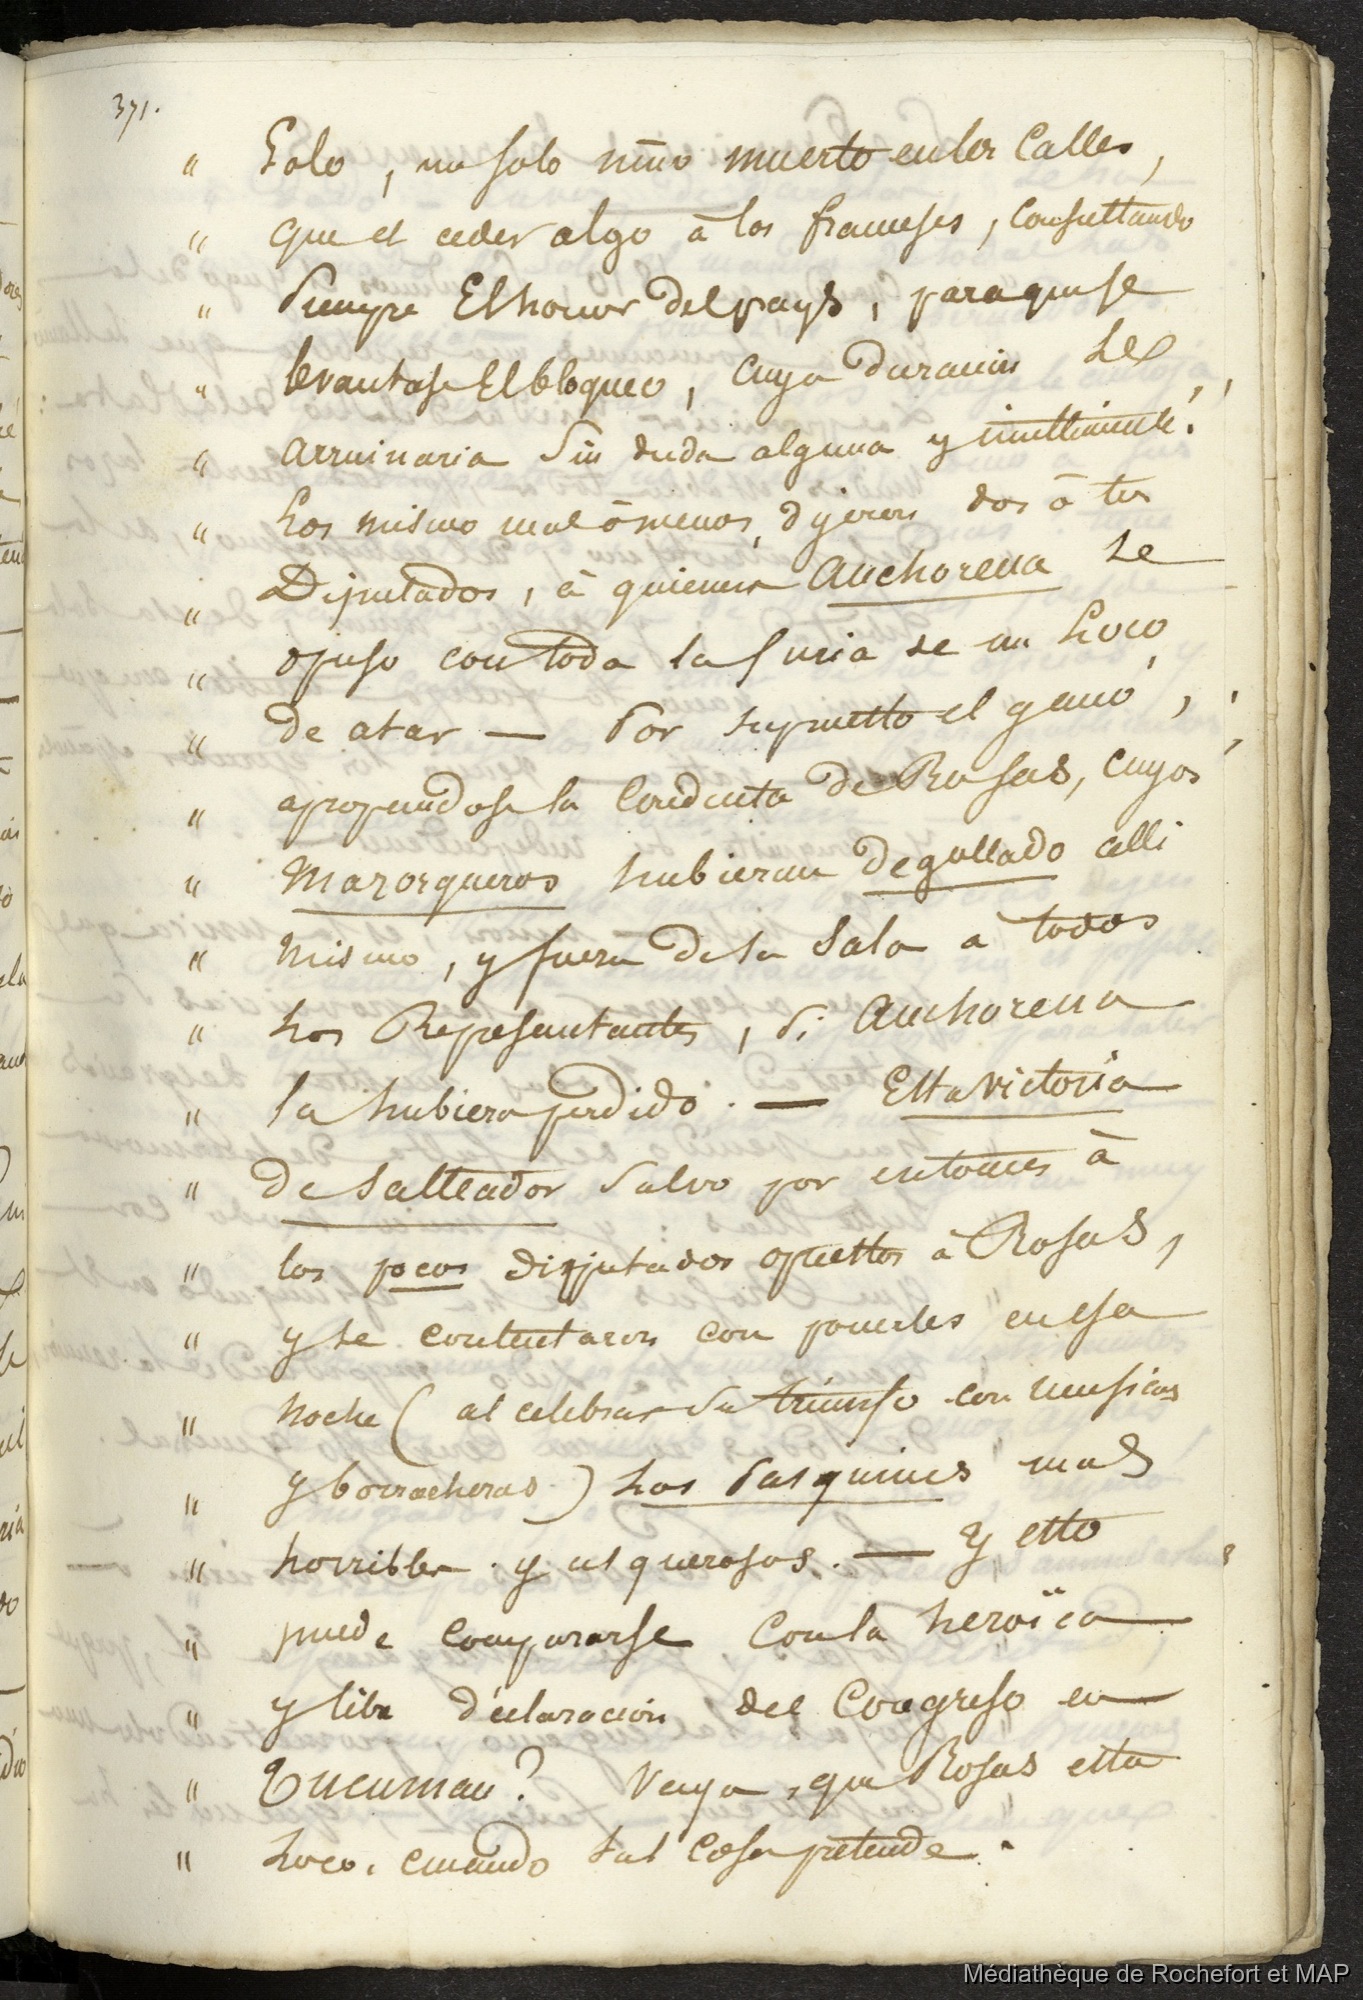 371.
" Solo, un solo niño muerto en las Calles,
" que el ceder algo à los franceses, consultando
" siempre El honor Del pays, para que se
" levantase El bloqueo, Cuya Duracion Le
" arruinaria Sin duda alguna y inutilmente.
" Los mismo mas ò menos, dyeron dos ò tres
" Diputados, à quienes Anchorena se
" opuso con toda la furia de un Loco
" De atar — Por supuetto el ganó,
" apoyandose la Conducta De Rosas, Cuyos
" Mazorqueros hubieran degollado alli
" mismo, y fuera De la Sala a todos
" Los Representantes, Si Anchorena
" la hubiera perdido. — Etta victoria
" de Salteador Salvo por entonces à
" los pocos diputados opuettos à Rosas,
" y se contentaron con ponerles en esa
" Noche (al celebrar Su triunfo con musicas
" y borracheras) Los Pasquines mas
" horribles y asquerosos. — Y etto
" puede compararse Con la heroïca
" y libre déclaracion del Congreso en
" Tucuman? Vaya, que Rosas etta
" Loco, cuando tal Cosa pretende.
Médiathèque de Rochefort et MAP